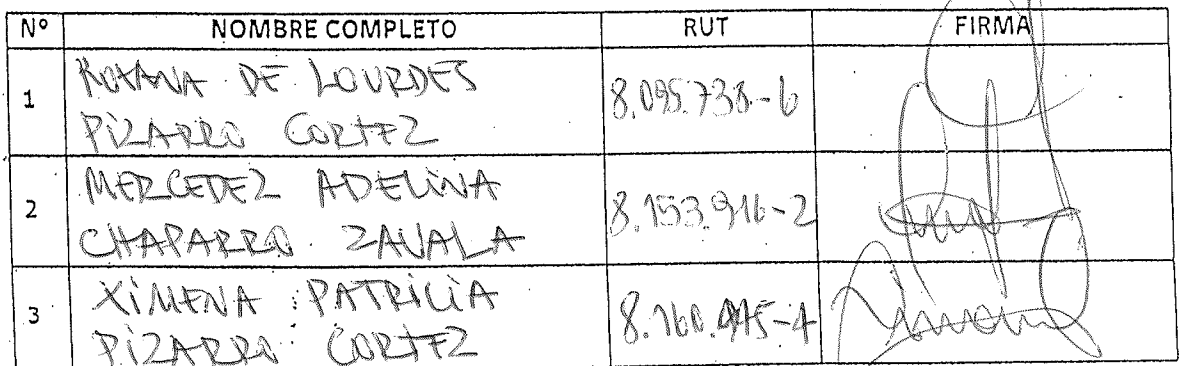 Nº NOMBRE COMPLETO RUT FIRMA
1 ROXANA DE LOURDES PIZARRO CORTEZ 8.095.738-6
2 MERCEDEZ ADELINA CHAPARRO ZAVALA 8.153.916-2
3 XIMENA PATRICIA PIZARRO CORTEZ 8.160.445-4